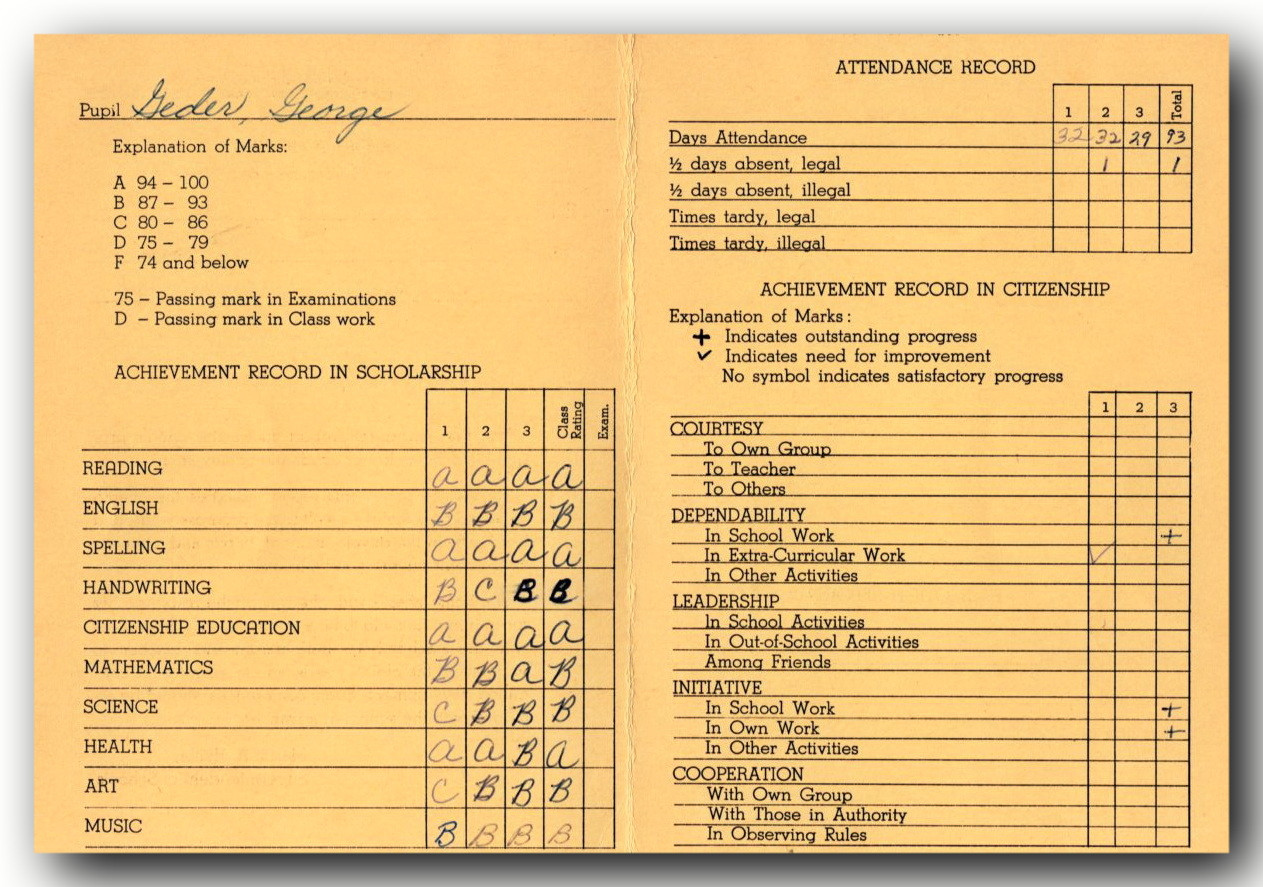 Pupil Geder, George
Explanation of Marks:
A 94 – 100
B 87 – 93
C 80 – 86
D 75 – 79
F 74 and below
75 – Passing mark in Examinations
D – Passing mark in Class work
ACHIEVEMENT RECORD IN SCHOLARSHIP
1 2 3 Class Rating Exam.
READING a a a a
ENGLISH B B B B
SPELLING a a a a
HANDWRITING B C B B
CITIZENSHIP EDUCATION a a a a
MATHEMATICS B B a B
SCIENCE C B B B
HEALTH a a B a
ART C B B B
MUSIC B B B B
ATTENDANCE RECORD
1 2 3 Total
Days Attendance 32 32 29 93
½ days absent, legal 1 1
½ days absent, illegal
Times tardy, legal
Times tardy, illegal
ACHIEVEMENT RECORD IN CITIZENSHIP
Explanation of Marks :
+ Indicates outstanding progress
✓ Indicates need for improvement
No symbol indicates satisfactory progress
1 2 3
COURTESY
To Own Group
To Teacher
To Others
DEPENDABILITY
In School Work +
In Extra-Curricular Work ✓
In Other Activities
LEADERSHIP
In School Activities
In Out-of-School Activities
Among Friends
INITIATIVE
In School Work +
In Own Work +
In Other Activities
COOPERATION
With Own Group
With Those in Authority
In Observing Rules